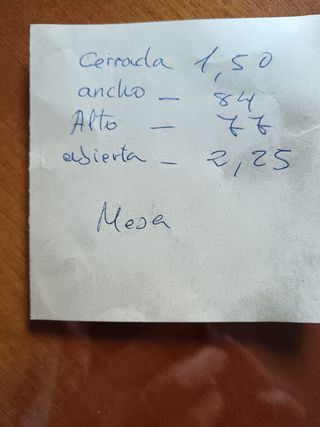 Cerrada 1,50
ancho - 84
Alto - 77
abierta - 2,25
Mesa